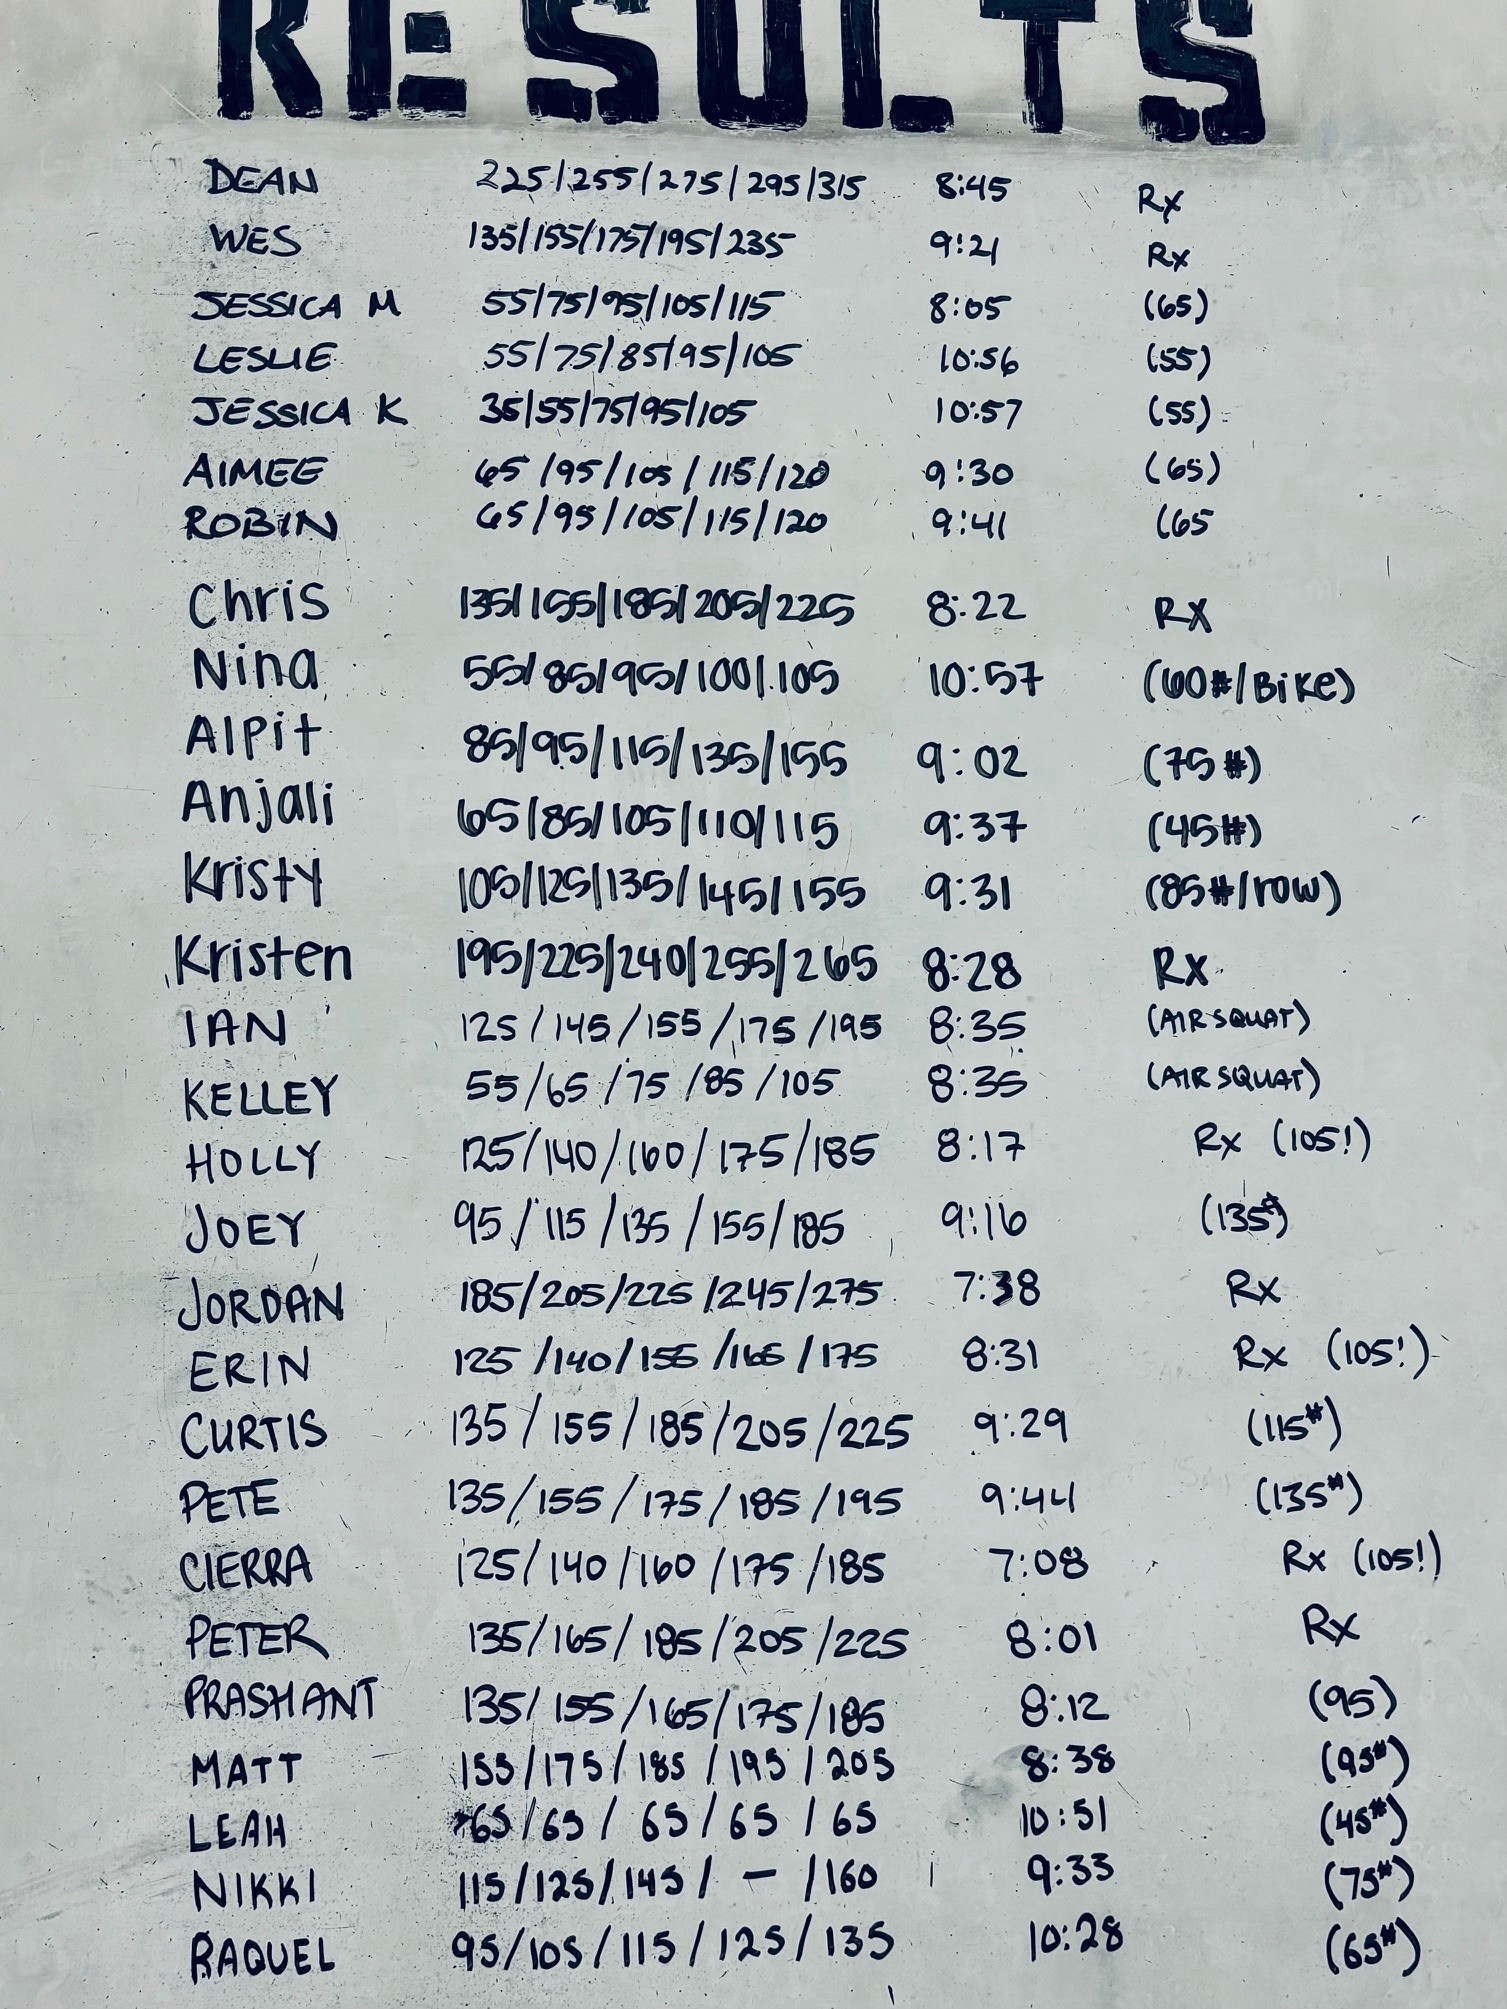 RESULTS
DEAN 225/255/275/295/315 8:45 Rx
WES 135/155/175/195/235 9:21 Rx
JESSICA M 55/75/95/105/115 8:05 (65)
LESLIE 55/75/85/95/105 10:56 (55)
JESSICA K 35/55/75/95/105 10:57 (55)
AIMEE 65/95/105/115/120 9:30 (65)
ROBIN 65/95/105/115/120 9:41 (65
Chris 135/155/185/205/225 8:22 RX
Nina 55/85/95/100/105 10:57 (60#/Bike)
Alpit 85/95/115/135/155 9:02 (75#)
Anjali 65/85/105/110/115 9:37 (45#)
Kristy 105/125/135/145/155 9:31 (85#/row)
Kristen 195/225/240/255/265 8:28 RX
IAN 125/145/155/175/195 8:35 (AIR SQUAT)
KELLEY 55/65/75/85/105 8:35 (AIR SQUAT)
HOLLY 125/140/160/175/185 8:17 Rx (105!)
JOEY 95/115/135/155/185 9:16 (135#)
JORDAN 185/205/225/245/275 7:38 Rx
ERIN 125/140/155/165/175 8:31 Rx (105!)
CURTIS 135/155/185/205/225 9:29 (115#)
PETE 135/155/175/185/195 9:44 (135#)
CIERRA 125/140/160/175/185 7:08 Rx (105!)
PETER 135/165/185/205/225 8:01 Rx
PRASHANT 135/155/165/175/185 8:12 (95)
MATT 155/175/185/195/205 8:38 (95#)
LEAH 65/65/65/65/65 10:51 (45#)
NIKKI 115/125/145/ — /160 9:33 (75#)
RAQUEL 95/105/115/125/135 10:28 (65#)